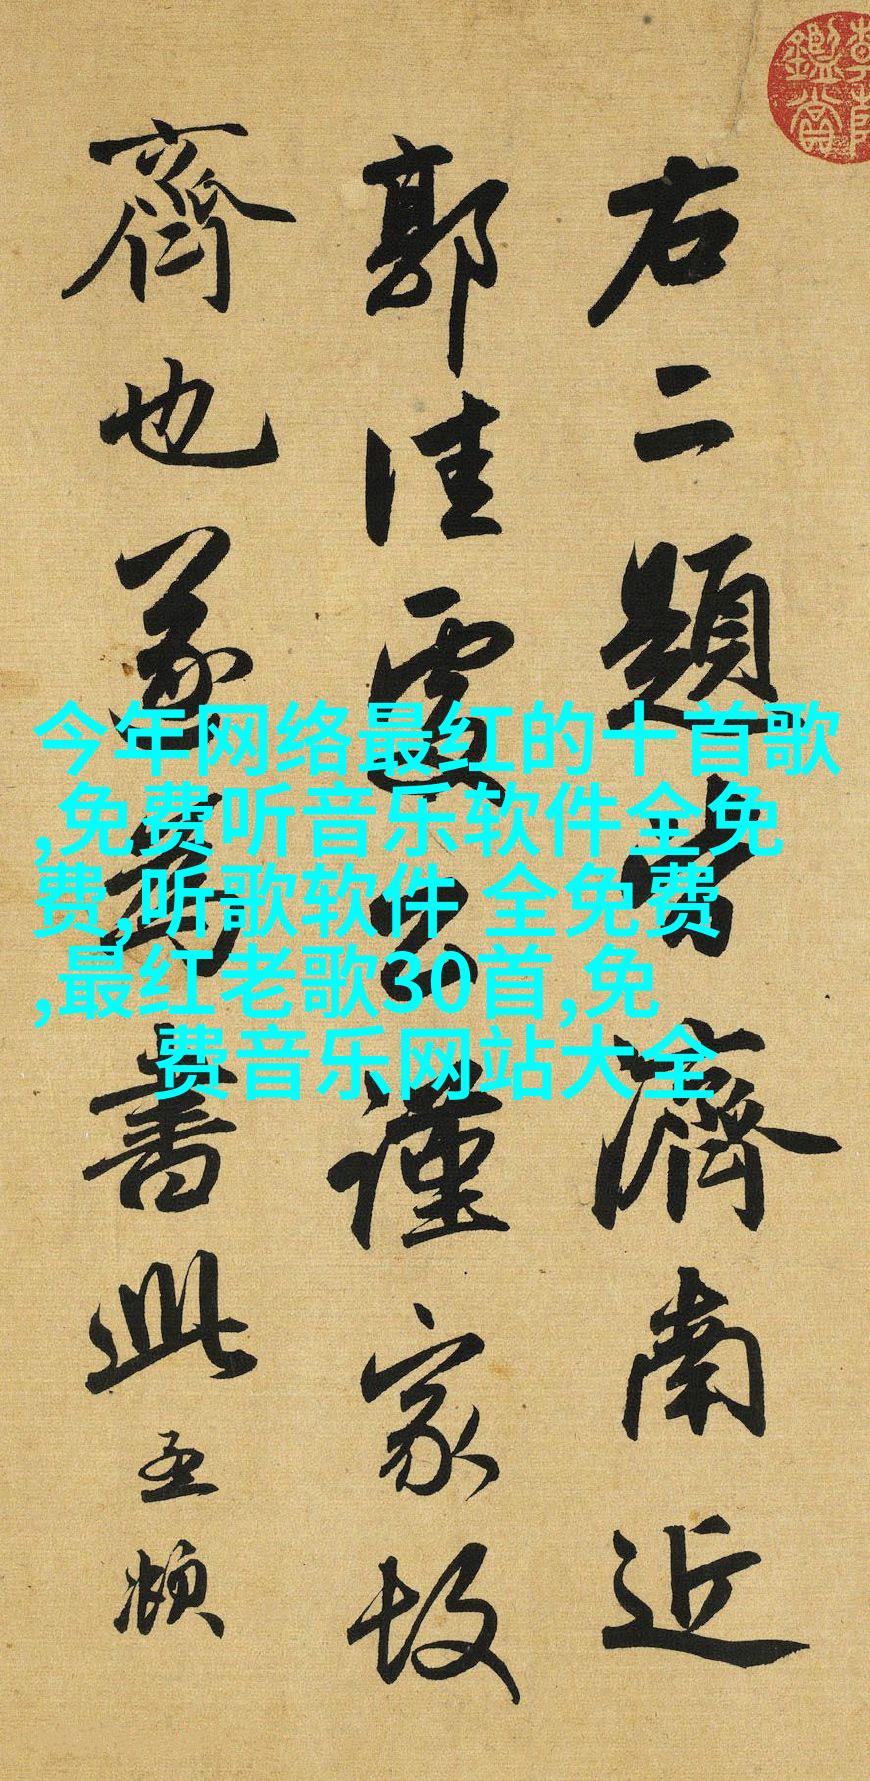 右二題皆濟南近
郭佳處公謹家故
齊也遂為書此孟頫
今年网络最红的十首歌
,免费听音乐软件全免
费,听歌软件 全免费
,最红老歌30首,免
费音乐网站大全
鑑賞